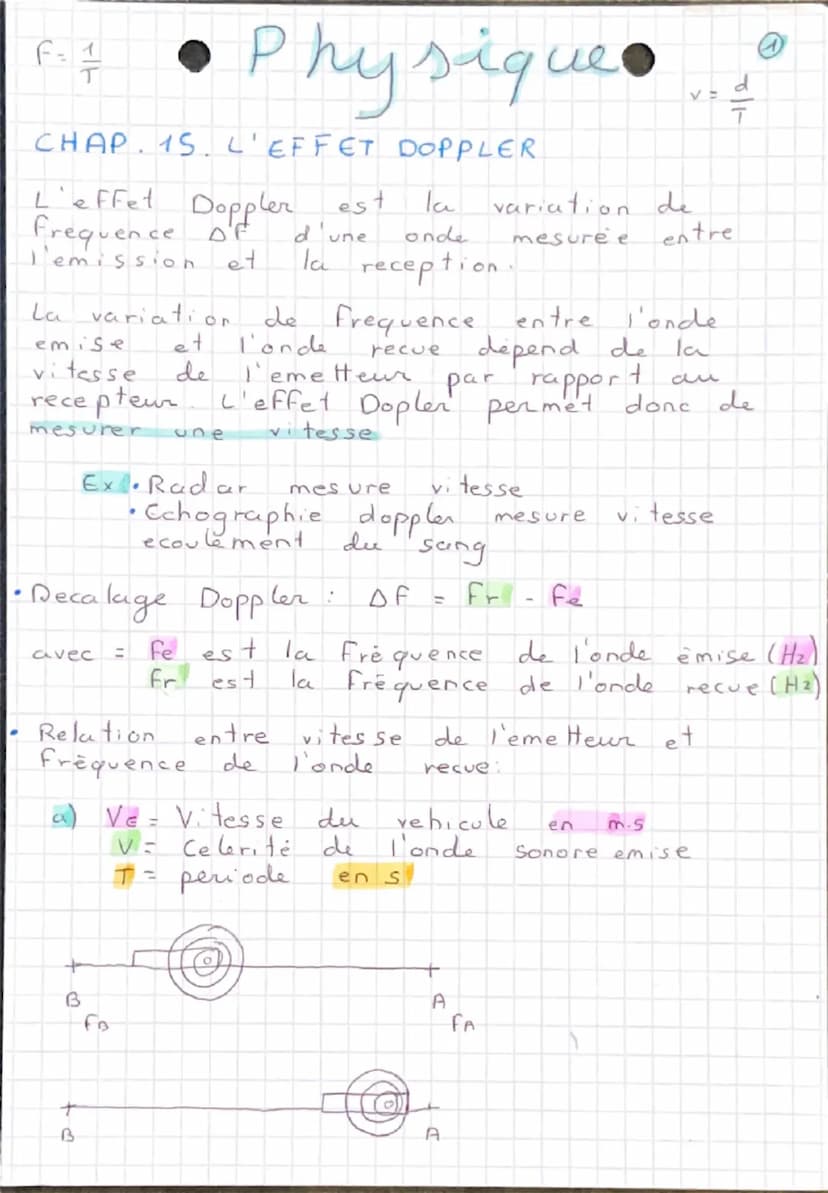 F = 1/T
Physique
1
v = d/T
CHAP. 15. L'EFFET DOPPLER
L'effet Doppler est la variation de
frequence ΔF d'une onde mesurée entre
l'emission et la reception.
La variation de frequence entre l'onde
emise et l'onde recue dépend de la
vitesse de l'emetteur par rapport au
recepteur. L'effet Dopler permet donc de
mesurer une vitesse
Ex • Radar mesure vitesse
• Echographie doppler mesure vitesse
ecoulement du sang
• Decalage Doppler : ΔF = Fr - Fe
avec = Fe est la Fréquence de l'onde émise (Hz)
Fr est la Fréquence de l'onde recue (Hz)
• Relation entre vitesse de l'emetteur et
fréquence de l'onde recue:
a) VE = Vitesse du vehicule en m.s
V = Celerité de l'onde sonore emise
T = periode en s
B A
FB FA
B A